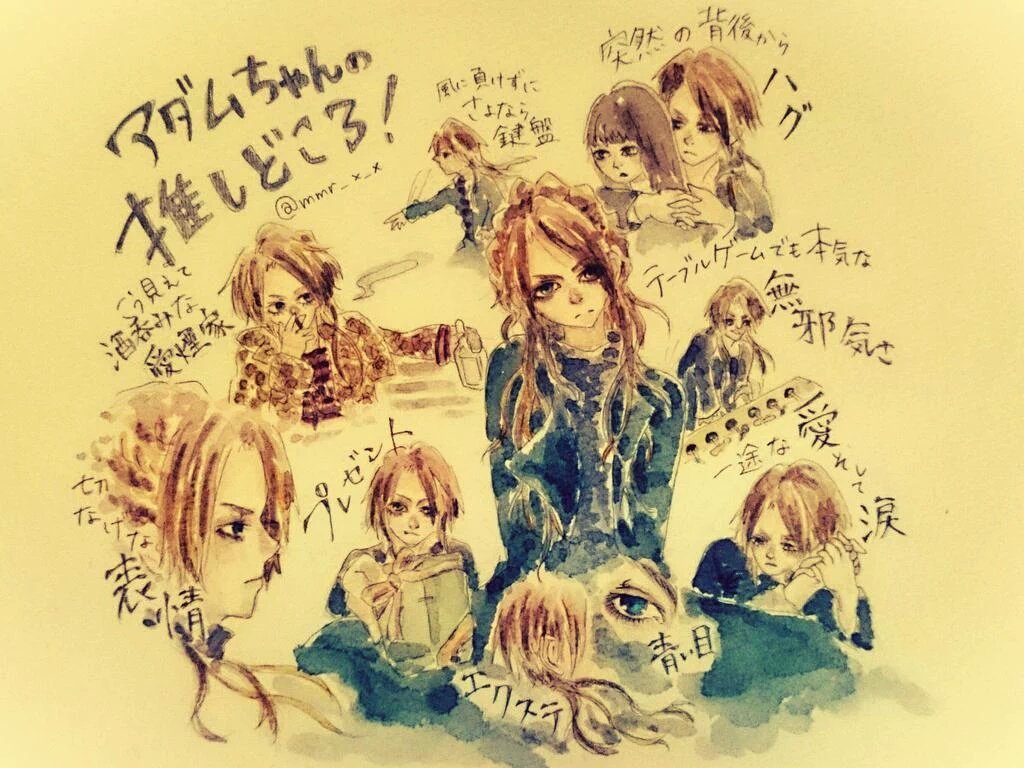 アダムちゃんの
推しどころ!
@mmr_x_x
風に負けずに
さよなら
鍵盤
突然の背後から
ハグ
こう見えて
酒呑みな
愛煙家
テーブルゲームでも本気な
無邪気さ
切
なげな
表情
プレゼント
一途な愛れして涙
エクステ
青い目